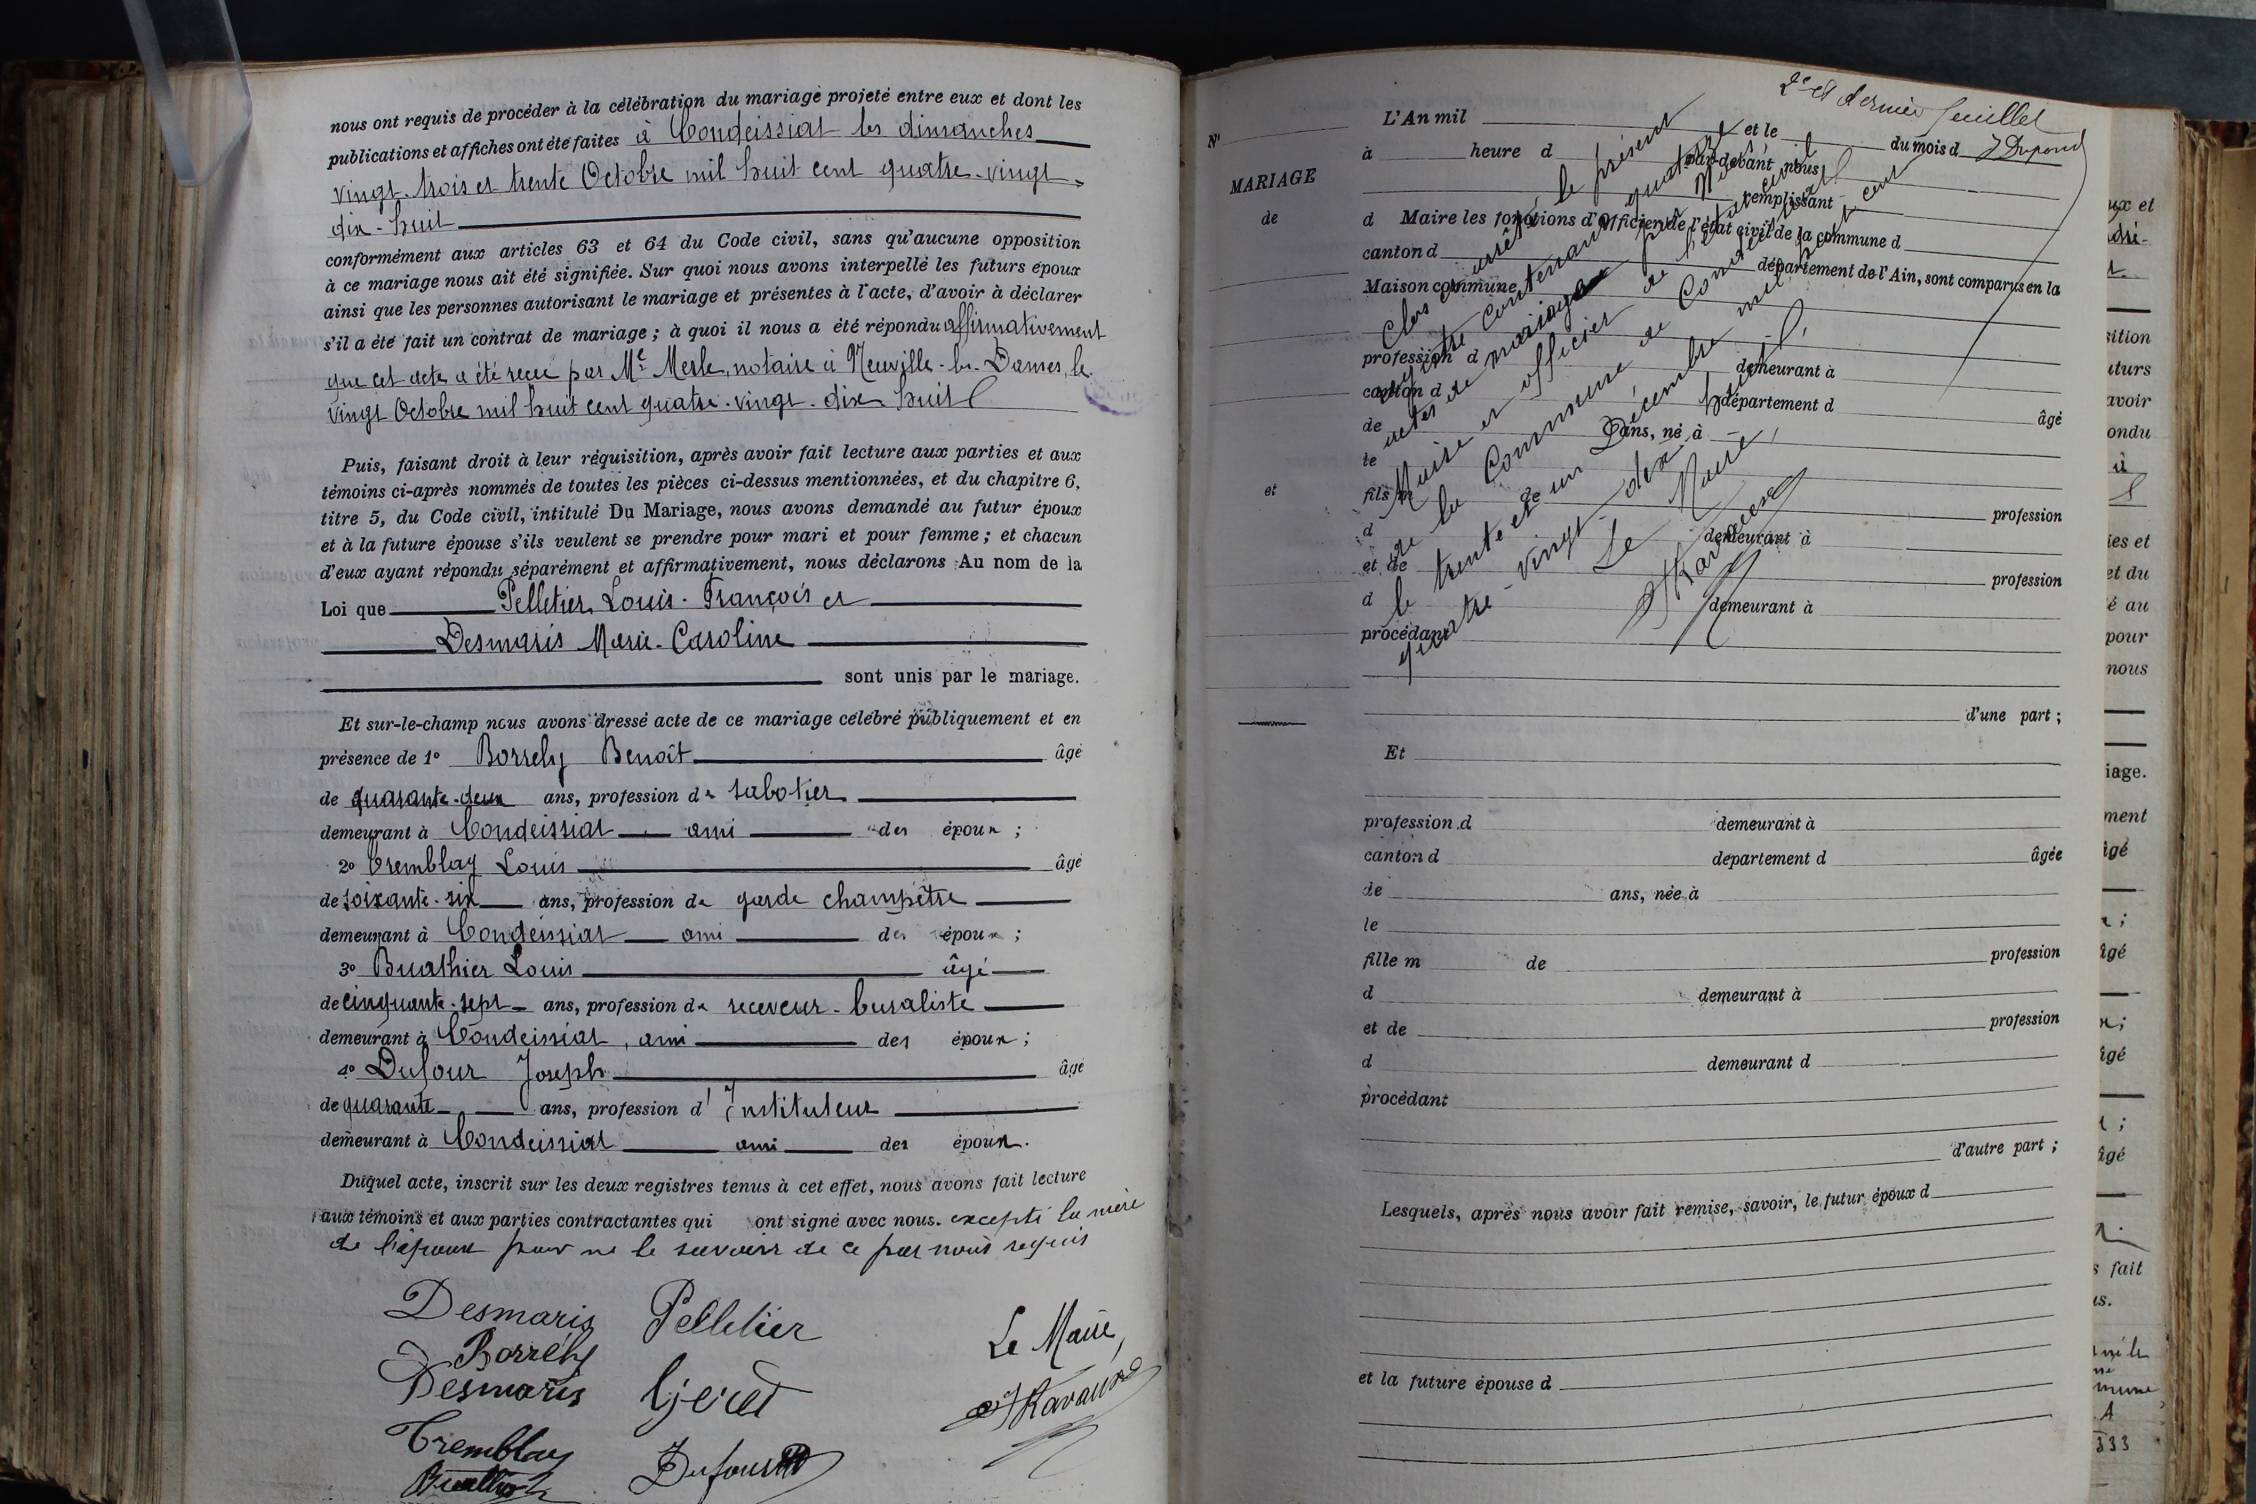 nous ont requis de procéder à la célébration du mariage projeté entre eux et dont les
publications et affiches ont été faites à Condeissiat les dimanches
vingt-trois et trente Octobre mil huit cent quatre-vingt-
dix-huit
conformément aux articles 63 et 64 du Code civil, sans qu'aucune opposition
à ce mariage nous ait été signifiée. Sur quoi nous avons interpellé les futurs époux
ainsi que les personnes autorisant le mariage et présentes à l'acte, d'avoir à déclarer
s'il a été fait un contrat de mariage ; à quoi il nous a été répondu affirmativement
que cet acte a été recu par Me Merle, notaire à Neuville-les-Dames, le
vingt Octobre mil huit cent quatre-vingt-dix-huit
Puis, faisant droit à leur réquisition, après avoir fait lecture aux parties et aux
témoins ci-après nommés de toutes les pièces ci-dessus mentionnées, et du chapitre 6,
titre 5, du Code civil, intitulé Du Mariage, nous avons demandé au futur époux
et à la future épouse s'ils veulent se prendre pour mari et pour femme ; et chacun
d'eux ayant répondu séparément et affirmativement, nous déclarons Au nom de la
Loi que Pelletier Louis-François et
Desmaris Marie-Caroline
sont unis par le mariage.
Et sur-le-champ nous avons dressé acte de ce mariage célébré publiquement et en
présence de 1° Borrely Benoît âgé
de quarante-deux ans, profession de sabotier
demeurant à Condeissiat ami des époux ;
2° Tremblay Louis âgé
de soixante-six ans, profession de garde champêtre
demeurant à Condeissiat ami des époux ;
3° Buathier Louis âgé
de cinquante-sept ans, profession de receveur-buraliste
demeurant à Condeissiat, ami des époux ;
4° Dufour Joseph âgé
de quarante ans, profession d'Instituteur
demeurant à Condeissiat ami des époux.
Duquel acte, inscrit sur les deux registres tenus à cet effet, nous avons fait lecture
aux témoins et aux parties contractantes qui ont signé avec nous. excepté la mère
de l'époux pour ne le savoir de ce par nous requis
Desmaris Pelletier
Borrély Le Maire,
Desmaris
Tremblay
Dufour
2e et dernier feuillet
J Dupond
N°
MARIAGE
de
et
L'An mil et le du mois d
à heure d par-devant nous
remplissant
d Maire les fonctions d'officier de l'état civil de la commune d
canton d département de l'Ain, sont comparus en la
Maison commune
profession d demeurant à
canton d département d âgé
de ans, né à
le
fils m de profession
d demeurant à
et de profession
d demeurant à
procédant
d'une part ;
Clos et arrêté le présent
registre contenant quatorze
actes de mariage par Nous
Maire et officier de l'état civil
de la Commune de Condeissiat
le trente et un Décembre mil huit cent
quatre-vingt-dix-huit,
Le Maire,
Et
profession d demeurant à
canton d département d âgée
de ans, née à
le
fille m de profession
d demeurant à
et de profession
d demeurant d
procédant
d'autre part ;
Lesquels, après nous avoir fait remise, savoir, le futur époux d
et la future épouse d